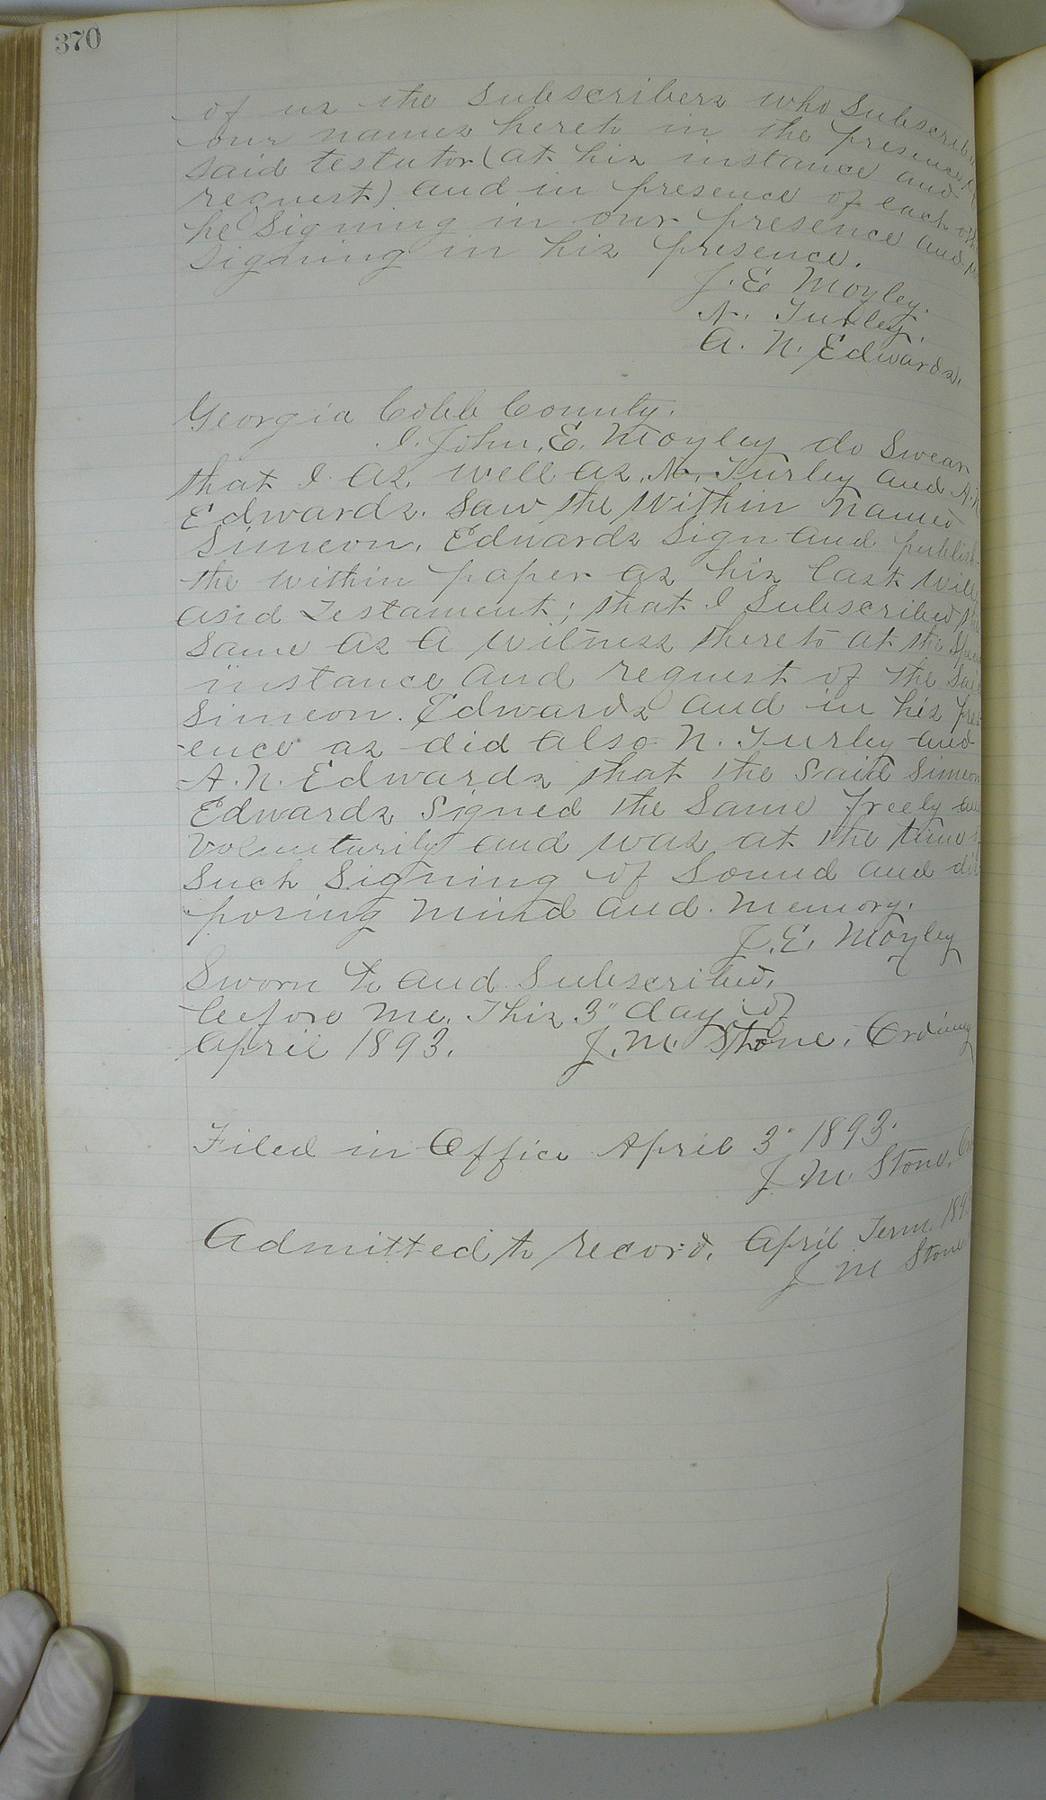 370
of us the subscribers who subscrib
our names hereto in the presence of
said testator (at his instance and
request) and in presence of each oth
he signing in our presence and
signing in his presence.
J. E Moyley.
N. Turley.
A. N. Edwards.
Georgia Cobb County.
I. John. E. Moyley do Swear
that I as. well as. N. Turley and A. N
Edwards. Saw the Within named
Simeon. Edwards Sign and publish
the within paper as his last Will
and Testament; that I Subscribed the
Same as a Witness thereto at the
instance and request of the Sa
Simeon. Edwards and in his pres
ence as did also N. Turley and
A. N. Edwards that the said Simeon
Edwards Signed the Same freely an
Voluntarily and was at the time
Such Signing of Sound and dis
posing Mind and. Memory.
J. E. Moyley
Sworn to and Subscribed.
before Me. This 3" day of
April 1893. J. M. Stone. Ordinary
Filed in Office April 3" 1893.
J. M Stone. Or
Admitted to record. April Term. 189
J M Stone